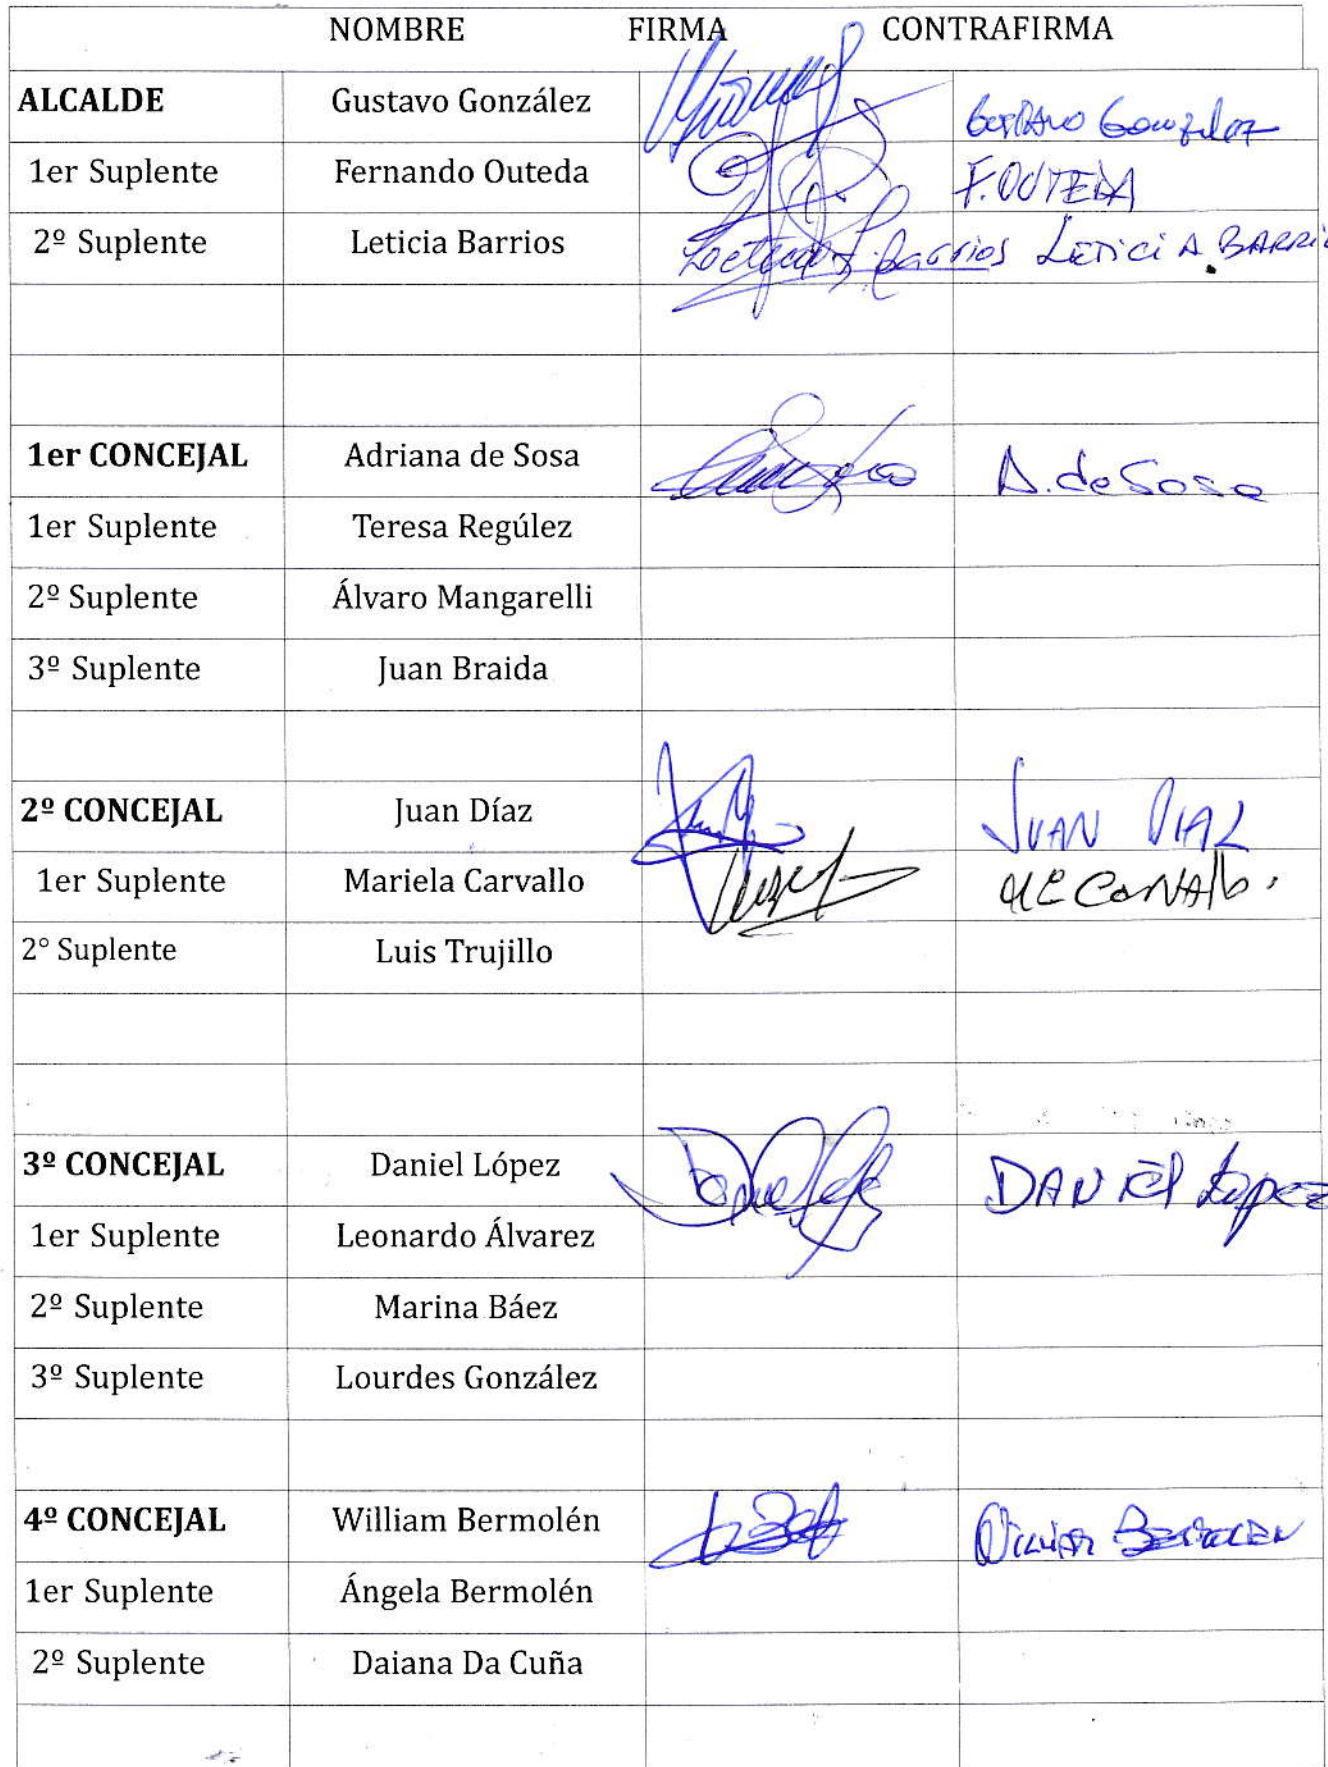 NOMBRE FIRMA CONTRAFIRMA
ALCALDE Gustavo González Gustavo Gonzalez
1er Suplente Fernando Outeda F. OUTEDA
2º Suplente Leticia Barrios Barrios LETICIA BARRI
1er CONCEJAL Adriana de Sosa A. de Sosa
1er Suplente Teresa Regúlez
2º Suplente Álvaro Mangarelli
3º Suplente Juan Braida
2º CONCEJAL Juan Díaz JUAN DIAZ
1er Suplente Mariela Carvallo
2° Suplente Luis Trujillo
3º CONCEJAL Daniel López DANIEL Lopez
1er Suplente Leonardo Álvarez
2º Suplente Marina Báez
3º Suplente Lourdes González
4º CONCEJAL William Bermolén
1er Suplente Ángela Bermolén
2º Suplente Daiana Da Cuña